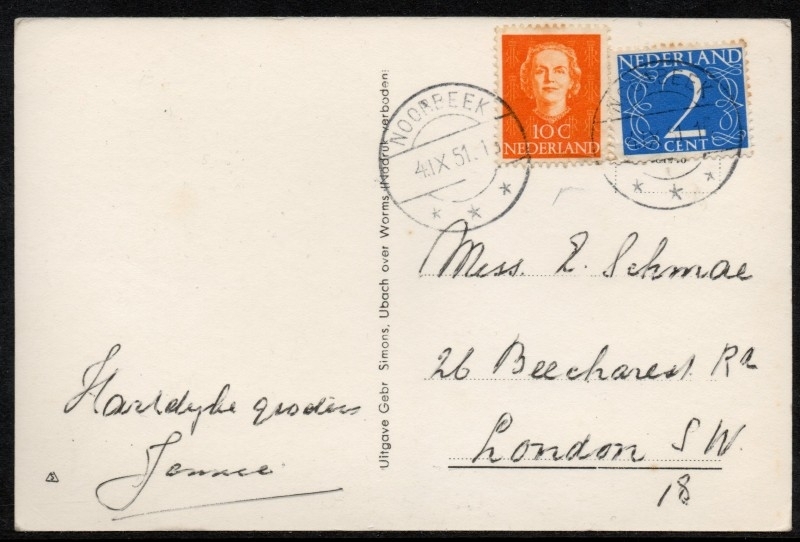 Hartelijke groeten
Uitgave Gebr Simons, Ubach over Worms (Nadruk verboden)
NOORBEEK
4.IX 51.-1
10 C
NEDERLAND
NEDERLAND
2
CENT
Miss. E. Schmae
26 Beecharest Rd
London S W.
18